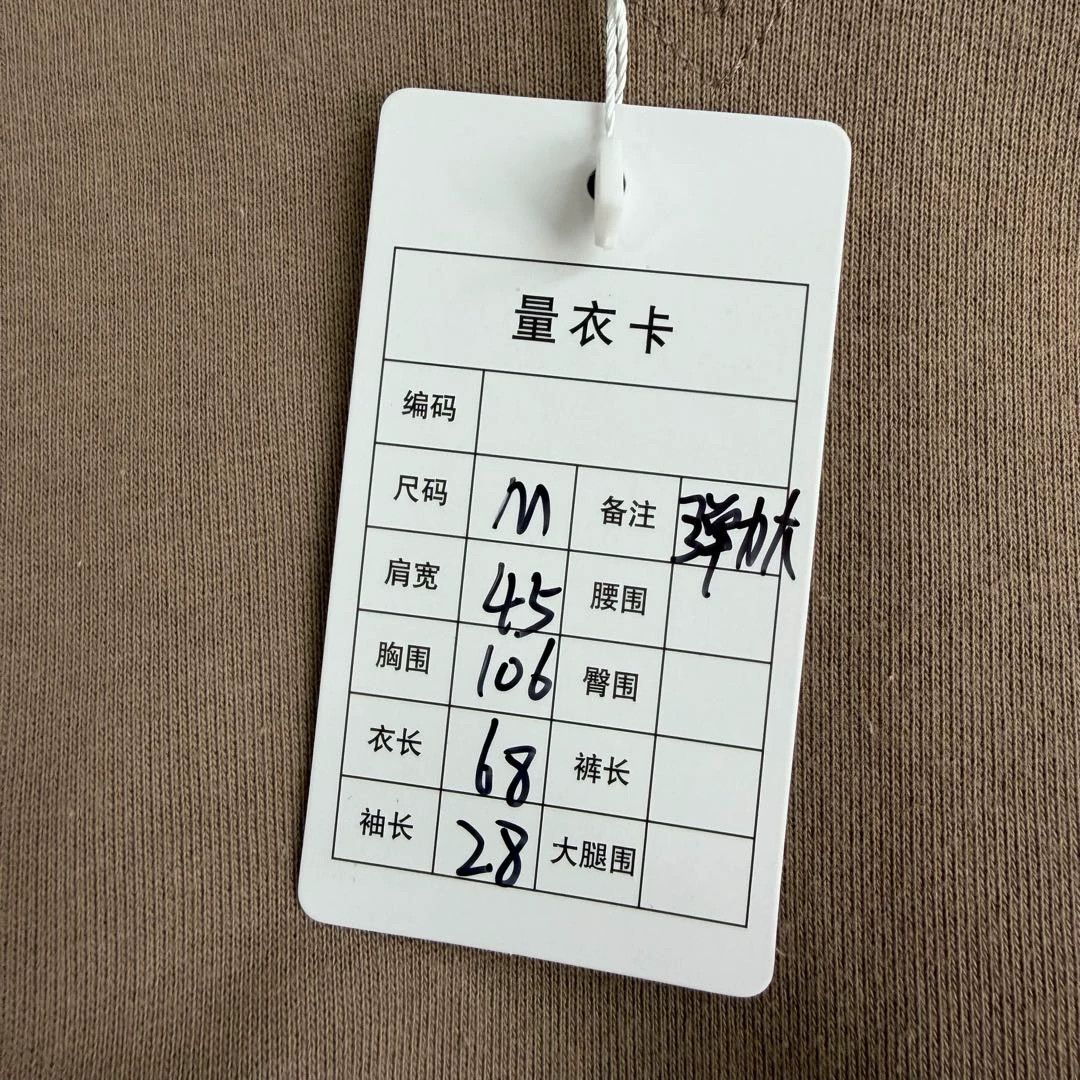 量衣卡
编码
尺码 M 备注 弹力大
肩宽 45 腰围
胸围 106 臀围
衣长 68 裤长
袖长 28 大腿围